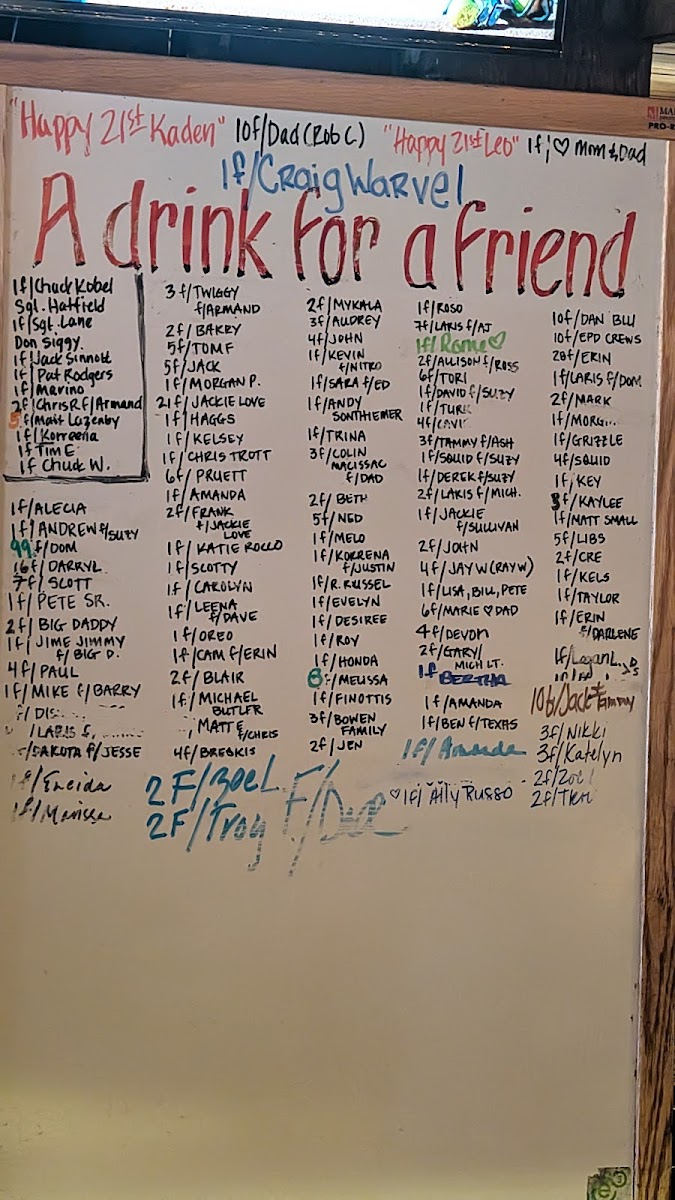 "Happy 21st Kaden" 10f/Dad (Rob C) "Happy 21st Leo" 1f/♡ Mom & Dad
1f/Craig Warvel
A drink for a friend
1f/Chuck Kobel
Sgt. Hatfield
1f/Sgt. Lane
Don Siggy.
1f/Jack Sinnott
1f/Pat Rodgers
1f/Marino
2f/Chris R f/Armand
5f/Matt Lazenby
1f/Korreena
1f Tim E
1f Chuck W.
1f/ALECIA
1f/ANDREW f/SUZY
99 f/DOM
16f/DARRYL
7f/SCOTT
1f/PETE SR.
2f/BIG DADDY
1f/JIME JIMMY
f/BIG D.
4f/PAUL
1f/MIKE f/BARRY
f/DIS
/LARIS f,
f/DAKOTA f/JESSE
1f/Eneida
1f/Marissa
3f/TWIGGY
f/ARMAND
2f/BAKRY
5f/TOMF
5f/JACK
1f/MORGAN P.
21f/JACKIE LOVE
1f/HAGGS
1f/KELSEY
1f/CHRIS TROTT
6f/PRUETT
1f/AMANDA
2f/FRANK
f/JACKIE
LOVE
1f/KATIE ROCCO
1f/SCOTTY
1f/CAROLYN
1f/LEENA
f/DAVE
1f/OREO
1f/CAM f/ERIN
2f/BLAIR
1f/MICHAEL
BUTLER
MATT E f/CHRIS
4f/BRESKIS
2F/ZOEL
2F/Troy F/
2f/MYKALA
3f/AUDREY
4f/JOHN
1f/KEVIN
f/NITRO
1f/SARA f/ED
1f/ANDY
SONTHHEIMER
1f/TRINA
3f/COLIN
MACISSAC
f/DAD
2f/BETH
5f/NED
1f/MELO
1f/KORRENA
f/JUSTIN
1f/R. RUSSEL
1f/EVELYN
1f/DESIREE
1f/ROY
1f/HONDA
8f/MELISSA
1f/FINOTTIS
3f/BOWEN
FAMILY
2f/JEN
1f/ROSO
7f/LARIS f/AJ
1f/Rome♡
2f/ALLISON f/ROSS
6f/TORI
1f/DAVID f/SUZY
1f/TURK
4f/CAVI
3f/TAMMY f/ASH
1f/SQUID f/SUZY
1f/DEREK f/SUZY
2f/LARIS f/MICH.
1f/JACKIE
f/SULLIVAN
2f/JOHN
4f/JAY W (RAY W)
1f/LISA, BILL, PETE
6f/MARIE ♡ DAD
4f/DEVON
2f/GARY/
MICH LT.
1f BERTHA
1f/AMANDA
1f/BEN f/TEXAS
1f/Amanda
♡1f/Ally Russo
10f/DAN BLU
10f/EPD CREWS
28f/ERIN
1f/LARIS f/DOM
2f/MARK
1f/MORG...
1f/GRIZZLE
4f/SQUID
1f/KEY
3f/KAYLEE
1f/MATT SMALL
5f/LIBS
2f/CRE
1f/KELS
1f/TAYLOR
1f/ERIN
f/DARLENE
1f/Logan L.
10f/Jack & Tammy
3f/Nikki
3f/Katelyn
2f/Zoe
2f/